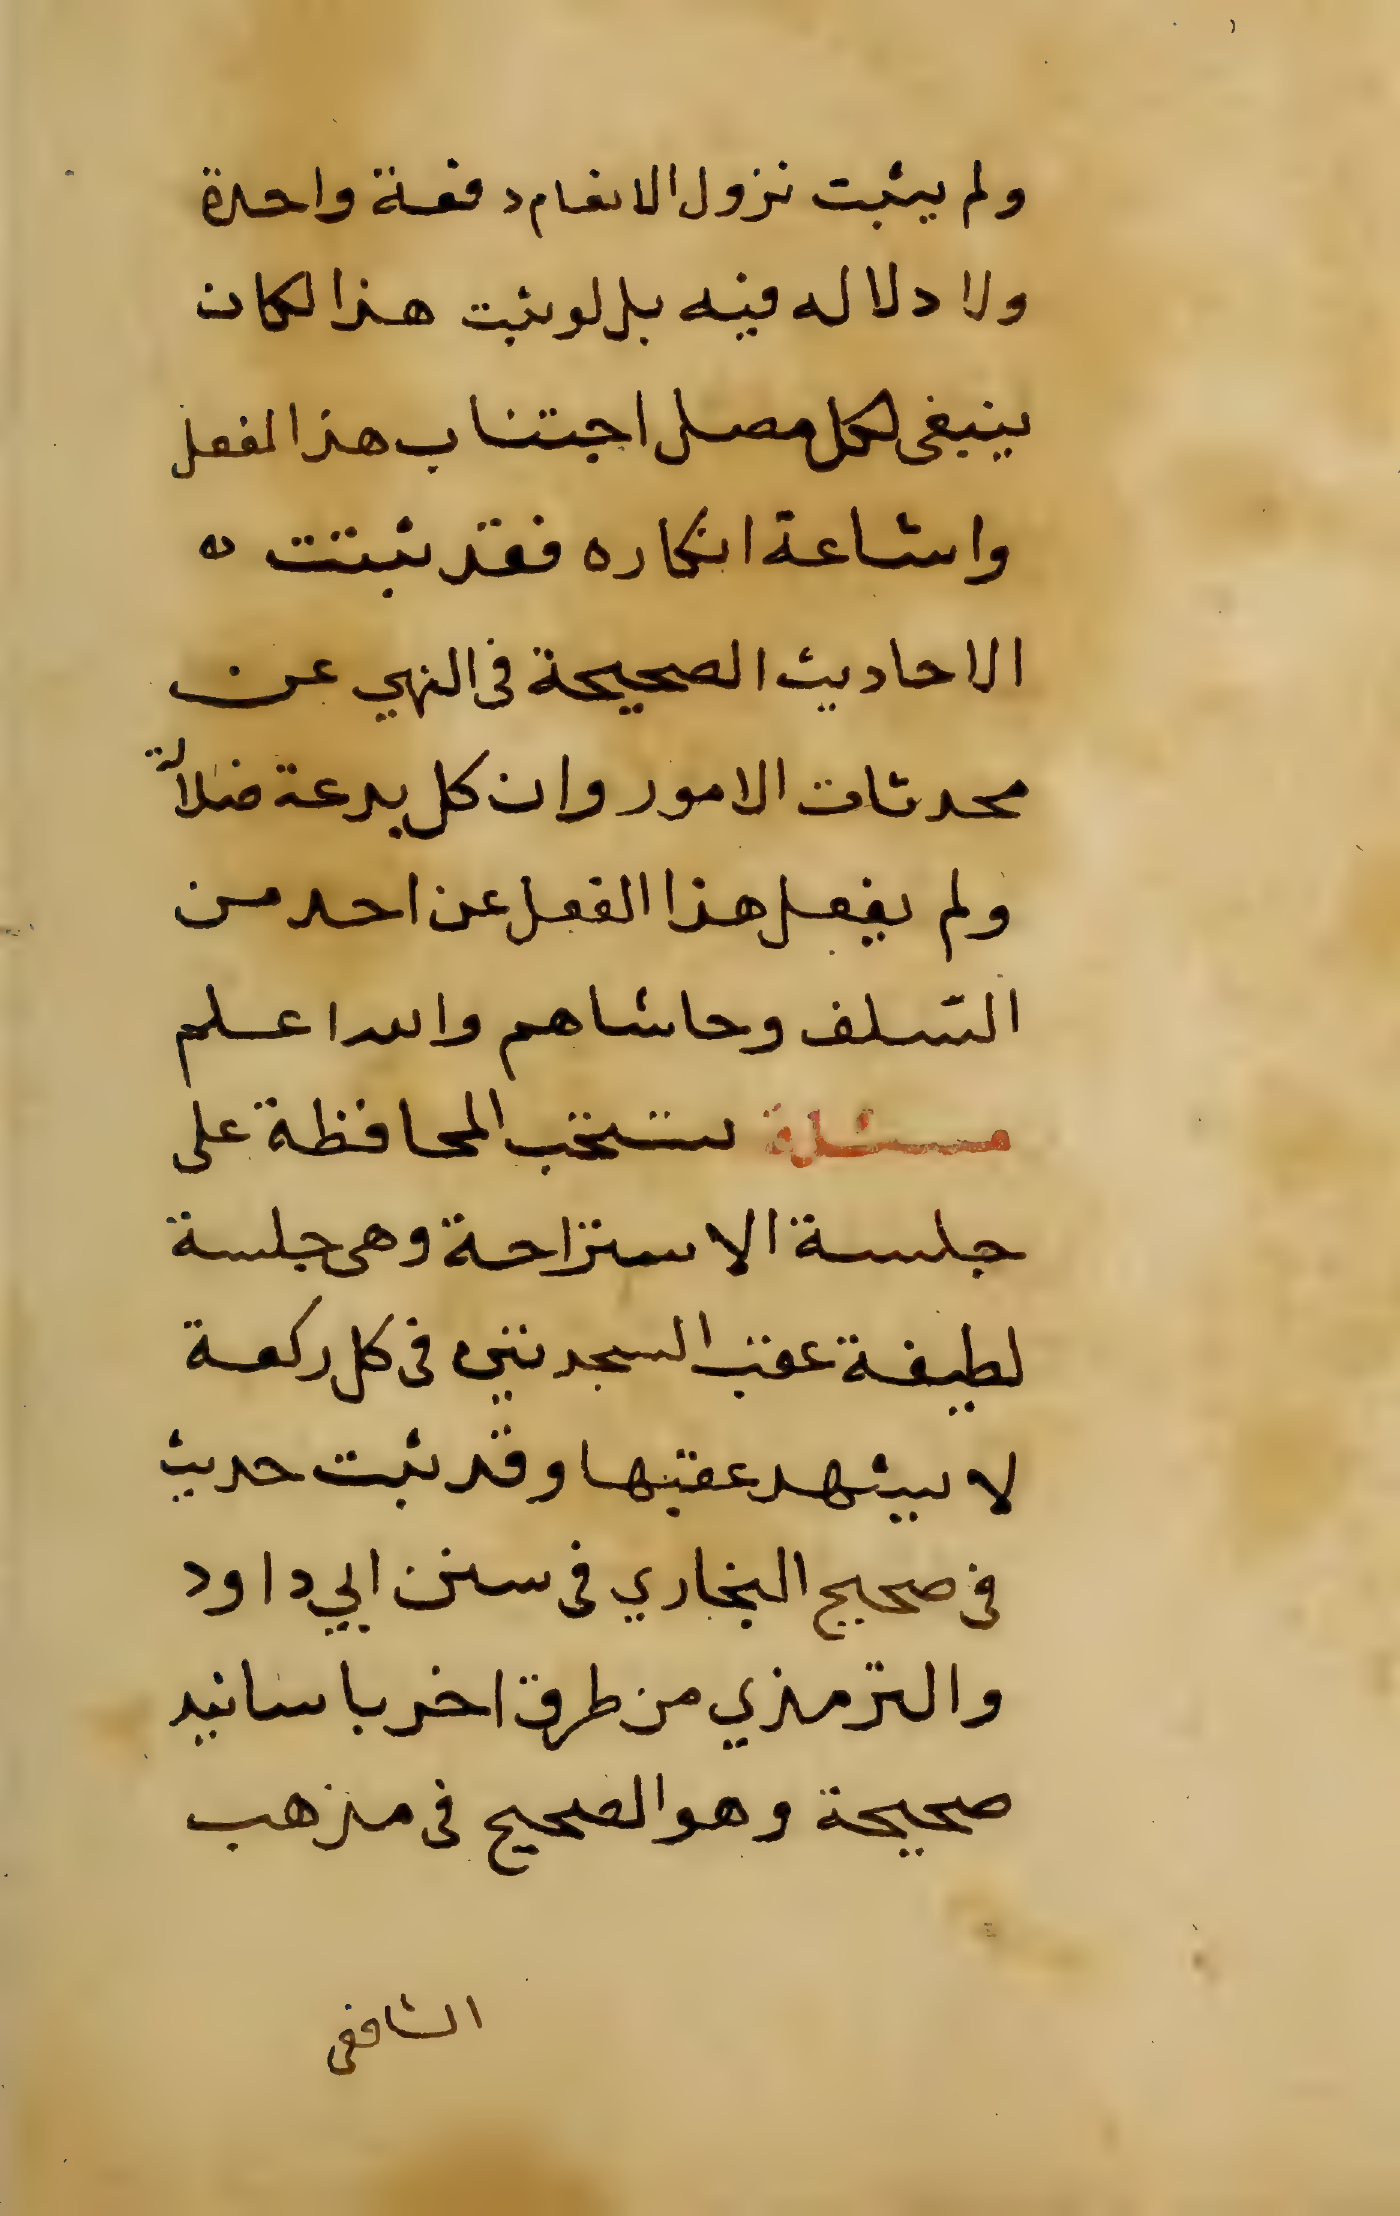 ولم يثبت نزول الانعام دفعة واحدة
ولا دلاله فيه بل لو ثبت هذا لكان
ينبغى لكل مصل اجتناب هذا الفعل
واشاعة انكاره فقد ثبتت
الاحاديث الصحيحة فى النهي عن
محدثات الامور وان كل بدعة ضلالة
ولم يفعل هذا الفعل عن احد من
السلف وحاشاهم والله اعلم
مسئلة تستحب المحافظة على
جلسة الاستراحة وهى جلسة
لطيفة عقب السجدتين فى كل ركعة
لا يتشهد عقبها وقد ثبت حديث
فى صحيح البخاري فى سنن ابي داود
والترمذي من طرق اخر باسانيد
صحيحة وهو الصحيح فى مذهب
الشافعى